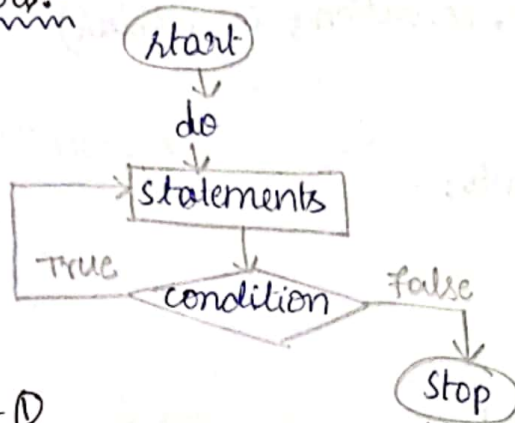 start
do
statements
True
condition
False
Stop